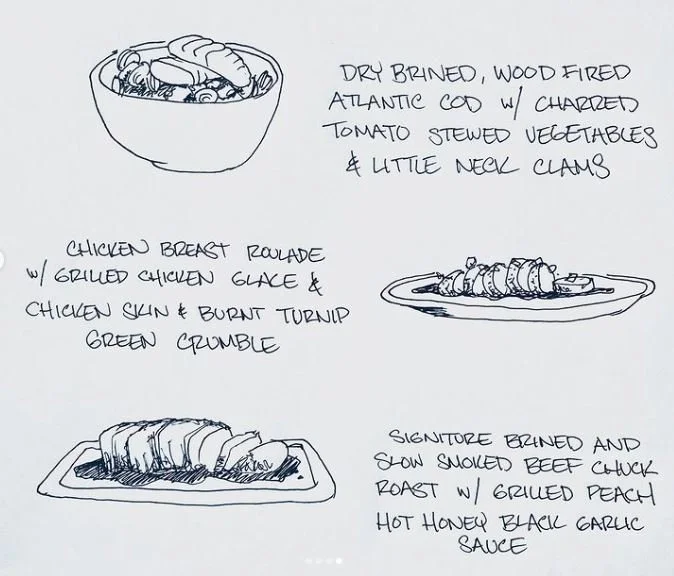 DRY BRINED, WOOD FIRED
ATLANTIC COD W/ CHARRED
TOMATO STEWED VEGETABLES
& LITTLE NECK CLAMS
CHICKEN BREAST ROULADE
W/ GRILLED CHICKEN GLACE &
CHICKEN SKIN & BURNT TURNIP
GREEN CRUMBLE
SIGNITORE BRINED AND
SLOW SMOKED BEEF CHUCK
ROAST W/ GRILLED PEACH
HOT HONEY BLACK GARLIC
SAUCE